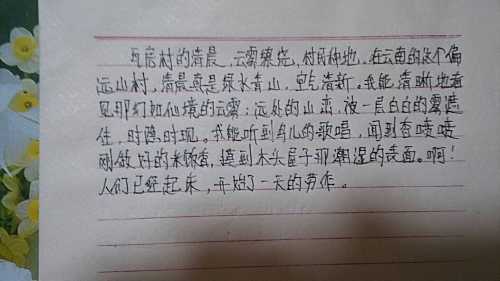 瓦房村的清晨,云雾缭绕,村民种地。在云南的这个偏
远山村,清晨真是绿水青山,空气清新。我能清晰地看
见那幻如仙境的云雾;远处的山峦,被一层白白的雾遮
住,时隐时现。我能听到鸟儿的歌唱,闻到香喷喷
刚做好的米饭香,摸到木头屋子那潮湿的表面。啊!
人们已经起床,开始了一天的劳作。